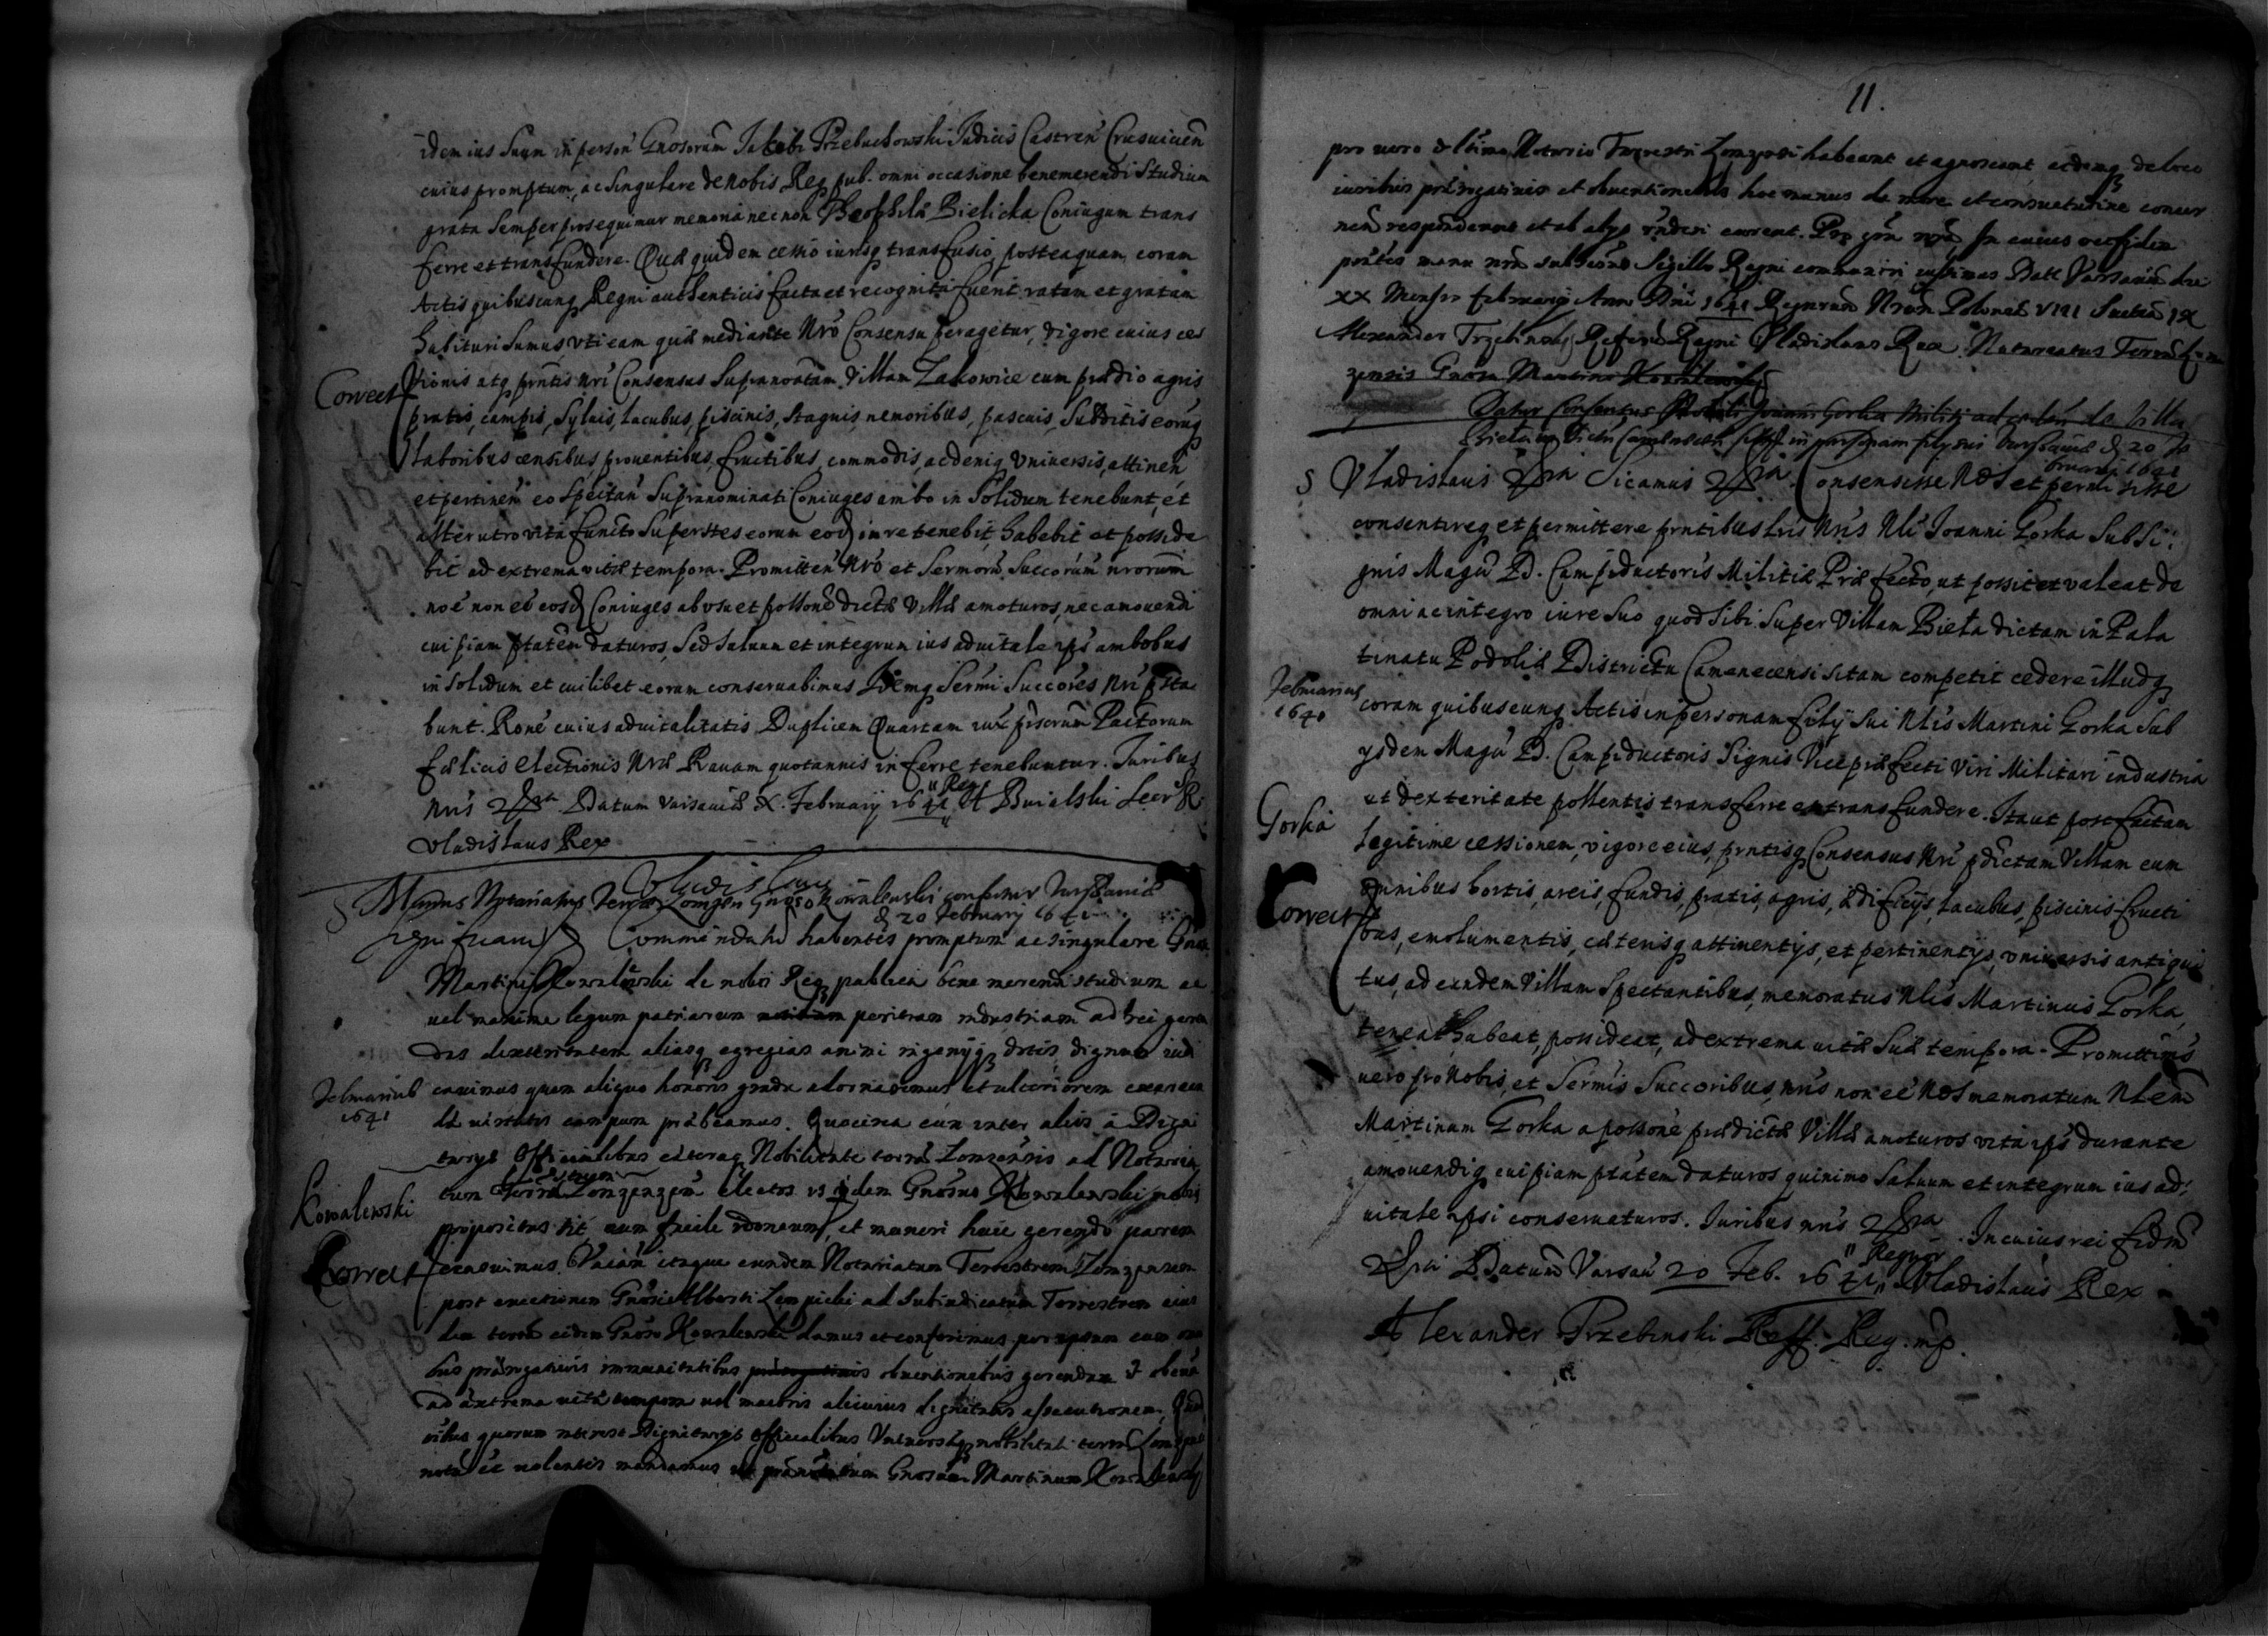 idem ius suum in person Gnosorum Jakobi Przebuchowski Judicis Castren Crusvicien
cuius promptum, ac singulare de nobis Reqpub. omni occasione benemerendi studium
grata semper prosequimur memoria necnon Theophila Bielicka Coniugum trans
ferre et transfundere. Quae quidem cessio iurisq transfusio, posteaquam coram
Actis quibuscunq Regni authenticis facta et recognita fuerit ratam et gratam
habituri sumus, uti eam quae mediante Nro Consensu peragetur, vigore cuius ces
Correct sionis atq prntis nri Consensus supranotatam Villam Zakowice cum praedio agris
pratis, campis, sylvis, lacubus, piscinis, stagnis, nemoribus, pascuis, subditis eorumq
laboribus censibus, proventibus, fructibus, commodis, ac deniq universis, attinen
et pertinen eo spectan supranominati Coniuges ambo in solidum tenebunt, et
alterutro vita functo superstes eorum eod iure tenebit habebit et posside
bit ad extrema vitae tempora. Promitten nro et Sermorum Succorum nrorum
noe non ee eosd Coniuges ab usu et possone dictae Villae amoturos, nec amovendi
cuipiam ptatem daturos, sed salvum et integrum ius advitale ips ambobus
in solidum et cuilibet eorum conservabimus Idemq Sermi Succores nri psta
bunt. Rone cuius advitalitatis Duplicem Quartam iux pscrum Pactorum
faelicis electionis nrae Ravam quotannis inferre tenebuntur. Juribus
nris &ra Datum Varsaviae X. February 1641 Reg
Vladislaus Rex
Vladislaus
Munus Notariatus Terrae Lomzen Gnoso Kowalewski confertur Varsaviae
d 20 February 1641
Significam Commendatu habentes promptum ac singulare Gnosi
Martini Kowalewski de nobis Reqpublica bene merendi studium ac
vel maxime legum patriarum peritiam industriam ad res geren
das dexteritatem aliasq egregias animi ingenijq dotes, dignum iudi
Februarius 1641 cavimus quem aliquo honoris gradu adornaremus et ulteriorem exercen
dae virtutis campum praebeamus. Quocirca cum inter alios a Digni
tarijs Officialibus caeteraq Nobilitate terrae Lomzensis ad Notaria
tum Terrestrem Lomzenzem electos is idem Gnosus Kowalewski nobis
Kowalewski propositus sit eum facile idoneum, et muneri huic gerendo parem
Correct censuimus. Vacan itaque eundem Notariatum Terrestrem Lomzensem
post evectionem Gnosi Alberti Lempicki ad Subiudicatum Terrestrem eius
dem terrae eidem Gnoso Kowalewski damus et conferimus per ipsum cum omni
bus praerogativis immunitatibus obventionibus gerendum & obtin
ad extrema vitae tempora vel maioris alicuius dignitatis assecutionem. Quod
vibus quorum interest Dignitarijs Officialibus Universaeq nobilitati terrae Lomzen
notum ee volentes mandamus ut praenotatum Gnosum Martinum Kowalewski
11.
pro vero & ltimo Notario Terrestri Lomzensi habeant et agnoscant eidemq de loco
iuribus praerogativis et obventionibus hoc munus de more et consuetudine concer
nen respondeant et ab alijs rnderi curent. Pro gra nra In cuius rei fidem
pntes manu nra subscrias Sigillo Regni communiri iussimus Dat Varsaviae die
XX Mensis february Anno Dni 1641 Regnorum Nrorum Poloniae VIII Sueciae IX
Alexander Trzebinski Referen Regni Vladislaus Rex. Notareatus Terrae Lom
zensis Gnoso Martino Kowalewski
Datur Consensus Nobili Joanni Gorka Militi ad cedendum de Villa
Bieta in Distr Camenecensi sita in personam filij sui Varsaviae d 20 Fe
bruary 1641
Vladislaus &ra Sicamus &ra Consensisse Nos et permisisse
consentireq et permittere prntibus lris nris Nli Joanni Gorka sub si
gnis Magci D. Campiductoris Militiae Praefecto, ut possit et valeat de
omni ac integro iure suo quod sibi super Villam Bieta dictam in Pala
tinatu Podoliae Districtu Camenecensi sitam competit cedere illudq
Februarius 1641 coram quibuscunq Actis in personam filij sui Nlis Martini Gorka sub
ysdem Magci D. Campiductoris signis Vicepraefecti Viri Militari industria
Gorka et dexteritate pollentis transferre et transfundere. Ita ut post factam
legitime cessionem, vigore eius, prntisq Consensus nri pdictam Villam cum
Correct omnibus hortis, areis, fundis, pratis, agris, aedificijs, lacubus, piscinis fructi
bus, emolumentis, caeterisq attinentijs, et pertinentijs, universis antiqui
tus, ad eandem Villam spectantibus, memoratus Nlis Martinus Gorka,
teneat habeat, possideat, ad extrema vitae suae tempora. Promittimus
vero pro Nobis, et Sermis Succoribus, nris non ee Nos memoratum Nlem
Martinum Gorka a possone praedictae Villae amoturos vita ips durante
amovendiq cuipiam ptatem daturos quinimo salvum et integrum ius ad
vitale ipsi conservaturos. Juribus nris &ra. In cuius rei fidem
&ra Datum Varsav 20 Feb. 1641 Regnor Vladislaus Rex
Alexander Trzebinski Reff. Reg. mp.